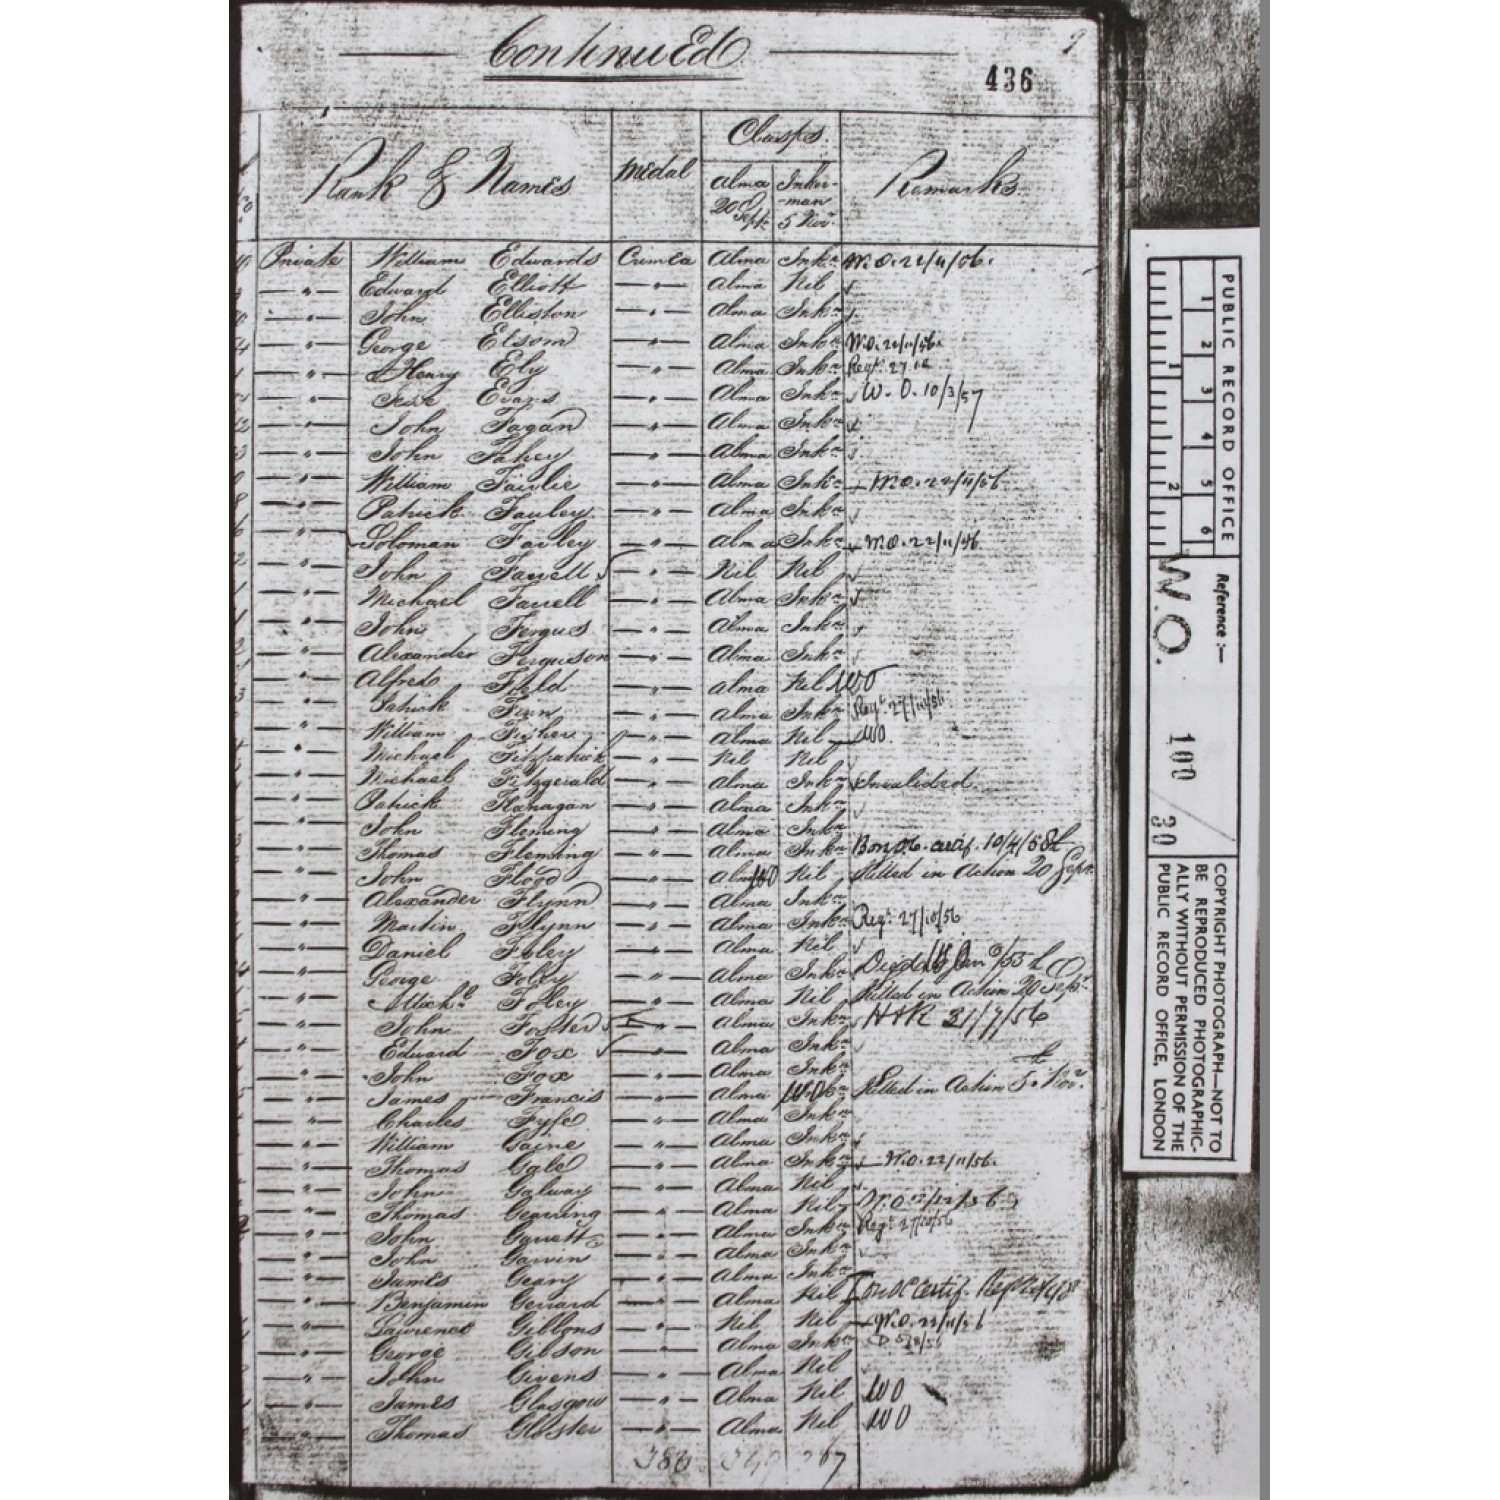 Continued
436
Rank & Names Medal Clasps. Remarks.
Alma 20 Sept. Inker-man 5 Nov.
Private William Edwards Crimea Alma Ink.n W.O. 22/11/56.
—"— Edward Elliott —"— Alma Nil
—"— John Elliston —"— Alma Ink.n
—"— George Elsom —"— Alma Ink.n W.O. 22/11/56.
—"— Henry Ely —"— Alma Ink.n Regt. 27
—"— Evans —"— Alma Ink.n W.O. 10/3/57
—"— John Fagan —"— Alma Ink.n
—"— John Fahey —"— Alma Ink.n
—"— William Fairlie —"— Alma Ink.n W.O. 22/11/56
—"— Patrick Fauley —"— Alma Ink.n
—"— Soloman Fawley —"— Alma Ink.n W.O. 22/11/56
—"— John Farrell —"— Nil Nil
—"— Michael Farrell —"— Alma Ink.n
—"— John Fergus —"— Alma Ink.n
—"— Alexander Ferguson —"— Alma Ink.n
—"— Alfred Field —"— Alma Nil WO
—"— Patrick Finn —"— Alma Ink.n Regt. 27/10/56
—"— William Fisher —"— Alma Nil WO.
—"— Michael Fitzpatrick —"— Nil Nil
—"— Michael Fitzgerald —"— Alma Ink.n Invalided.
—"— Patrick Flanagan —"— Alma Ink.n
—"— John Fleming —"— Alma Ink.n
—"— Thomas Fleming —"— Alma Ink.n certif. 10/4/58
—"— John Flood —"— Alma WO Nil Killed in Action 20 Sepr.
—"— Alexander Flynn —"— Alma Ink.n
—"— Martin Flynn —"— Alma Ink.n Regt. 27/10/56
—"— Daniel Foley —"— Alma Nil
—"— George Foley —"— Alma Ink.n Died Jan /55
—"— Michl. Folley —"— Alma Nil Killed in Action 20 Sepr.
—"— John Foster —"— Alma Ink.n 31/7/56
—"— Edward Fox —"— Alma Ink.n
—"— John Fox —"— Alma Ink.n
—"— James Francis —"— Alma W.O. Killed in Action 5 Novr.
—"— Charles Fyfe —"— Alma Ink.n
—"— William Gaine —"— Alma Ink.n
—"— Thomas Gale —"— Alma Ink.n W.O. 22/11/56.
—"— John Galway —"— Alma Nil
—"— Thomas Gearing —"— Alma Nil W.O
—"— John Garrett —"— Alma Ink.n Regt. 27/10/56
—"— John Garvin —"— Alma Ink.n
—"— James Geary —"— Alma Ink.n
—"— Benjamin Gerrard —"— Alma Nil Certif.
—"— Lawrence Gibbons —"— Nil Nil W.O. 22/11/56
—"— George Gibson —"— Alma Ink.n
—"— John Givens —"— Alma Nil
—"— James Glasgow —"— Alma Nil WO
—"— Thomas Gloster —"— Alma Nil WO
PUBLIC RECORD OFFICE
1 2 3 4 5 6
1 2
Reference :—
W.O. 100 30
COPYRIGHT PHOTOGRAPH—NOT TO
BE REPRODUCED PHOTOGRAPHIC-
ALLY WITHOUT PERMISSION OF THE
PUBLIC RECORD OFFICE, LONDON